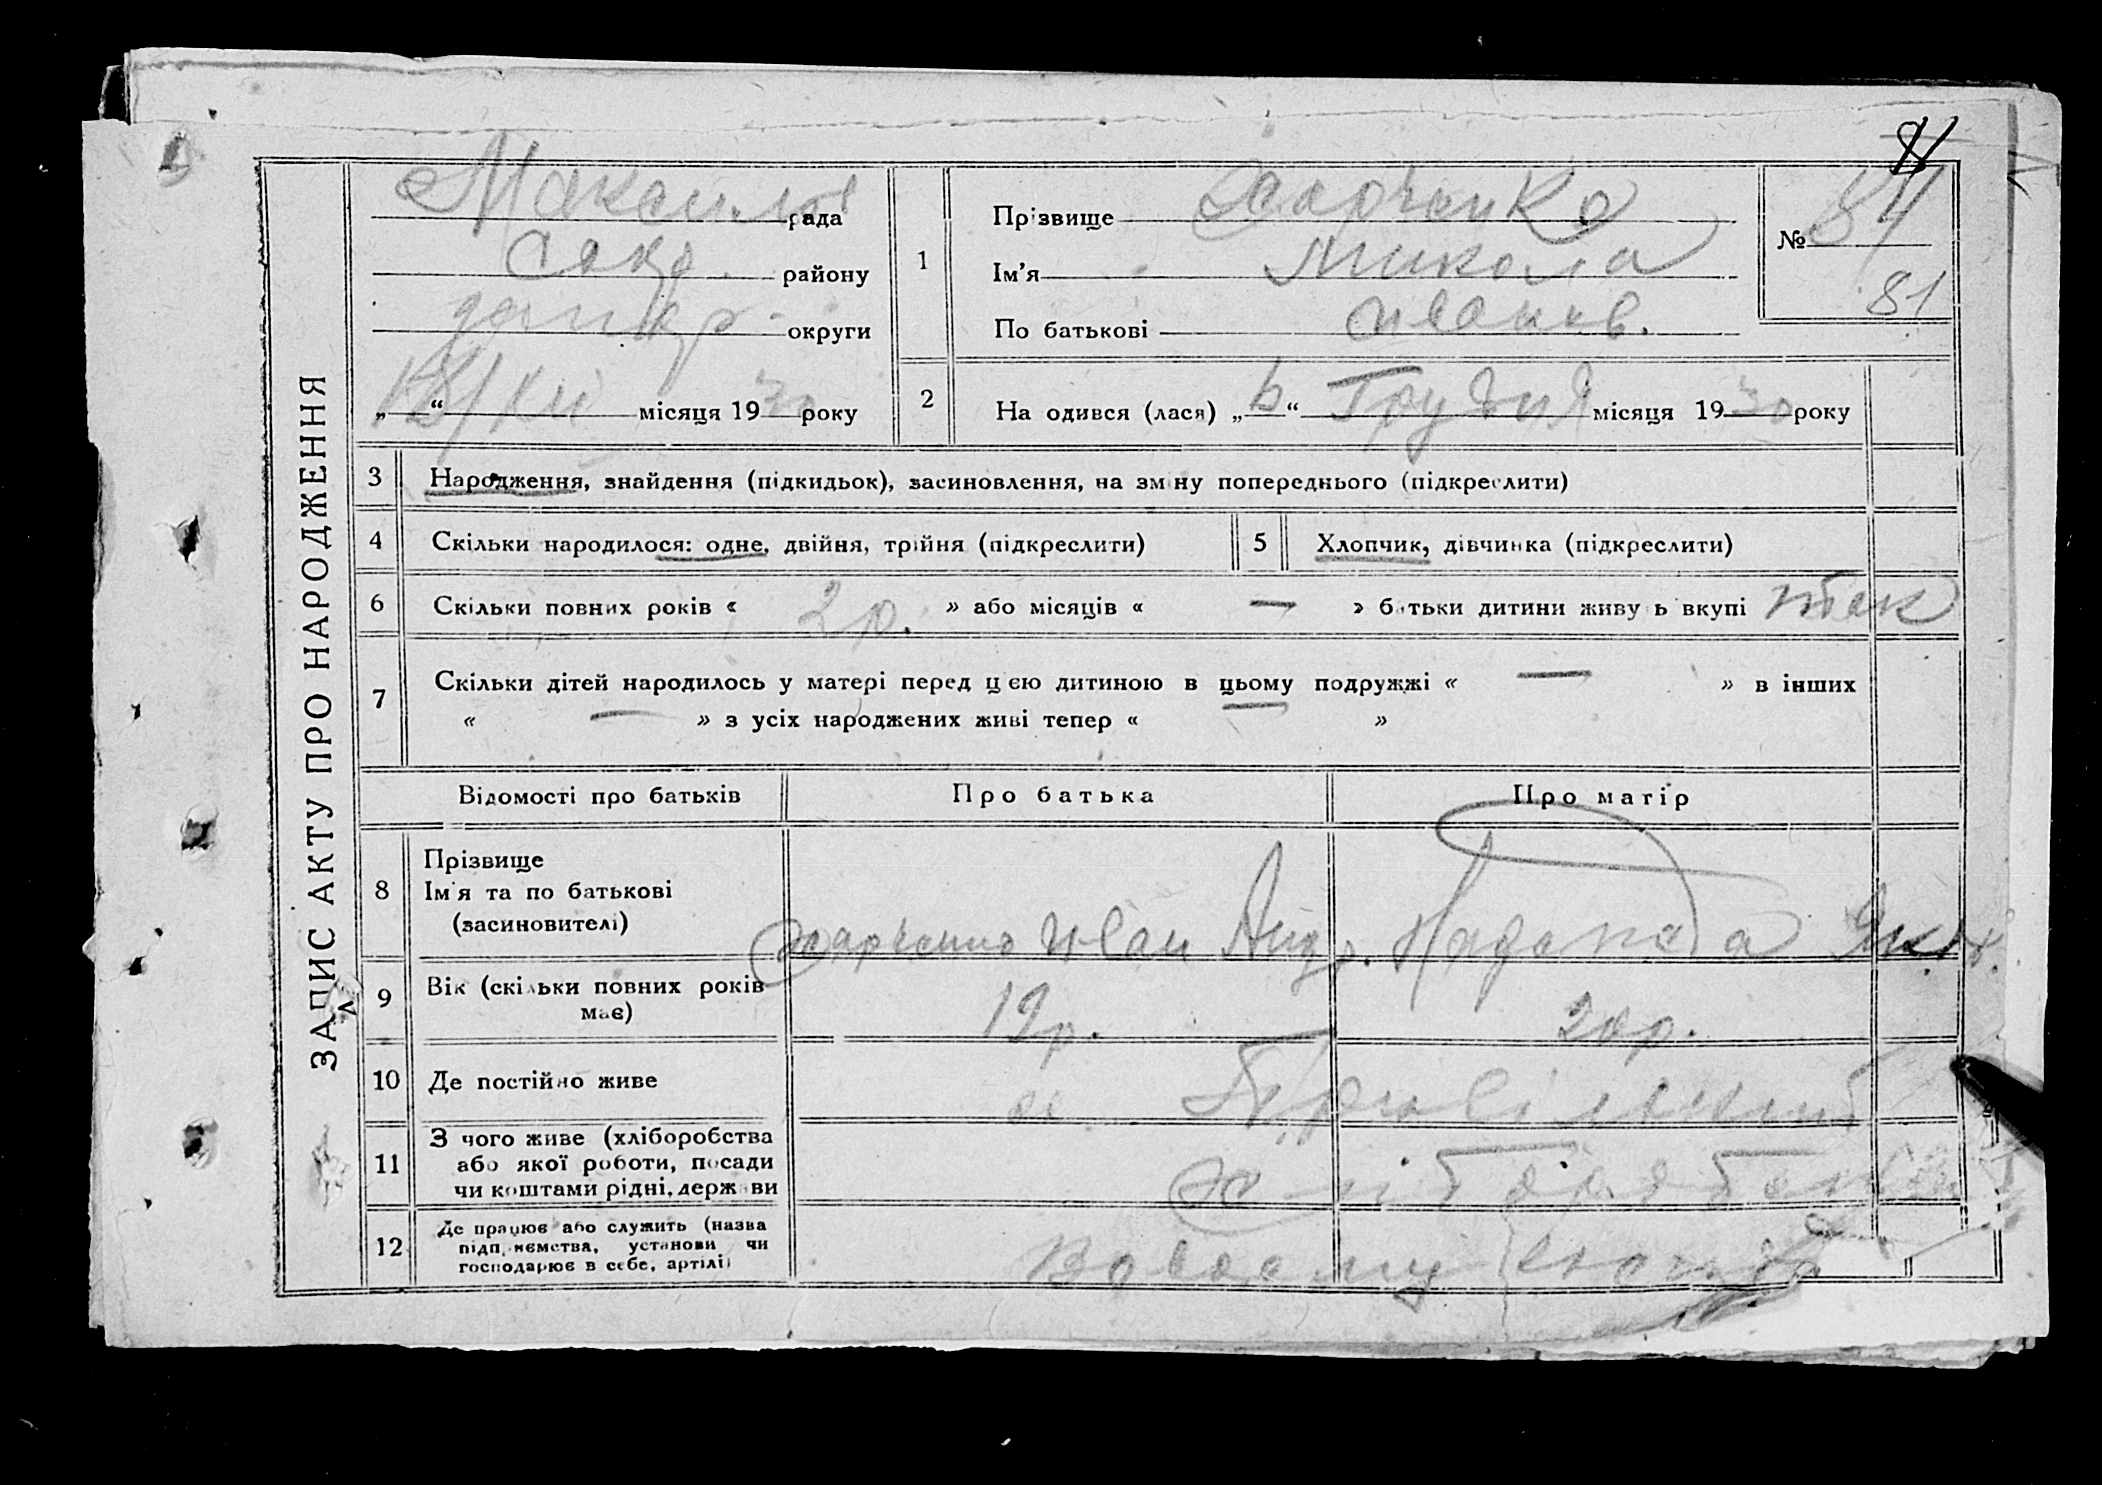 ЗАПИС АКТУ ПРО НАРОДЖЕННЯ
рада
району
округи
„ “ місяця 19 30 року
1
Прізвище Харченко
Ім'я Микола
По батькові Иванов.
№ 84
81
2
На одився (лася) „6“ Грудня місяця 19 30 року
3
Народження, знайдення (підкидьок), засиновлення, на зміну попереднього (підкреслити)
4
Скільки народилося: одне, двійня, трійня (підкреслити)
5
Хлопчик, дівчинка (підкреслити)
6
Скільки повних років « 2 р. » або місяців « — » батьки дитини живуть вкупі так
7
Скільки дітей народилось у матері перед цією дитиною в цьому подружжі « — » в інших
« — » з усіх народжених живі тепер « »
Відомості про батьків
Про батька
Про матір
8
Прізвище
Ім'я та по батькові
(засиновителі)
Харченко Иван Андр.
9
Вік (скільки повних років
має)
19 р.
20 р.
10
Де постійно живе
11
З чого живе (хліборобства
або якої роботи, посади
чи коштами рідні, держави
12
Де працює або служить (назва
підприємства, установи чи
господарює в себе, артілі)